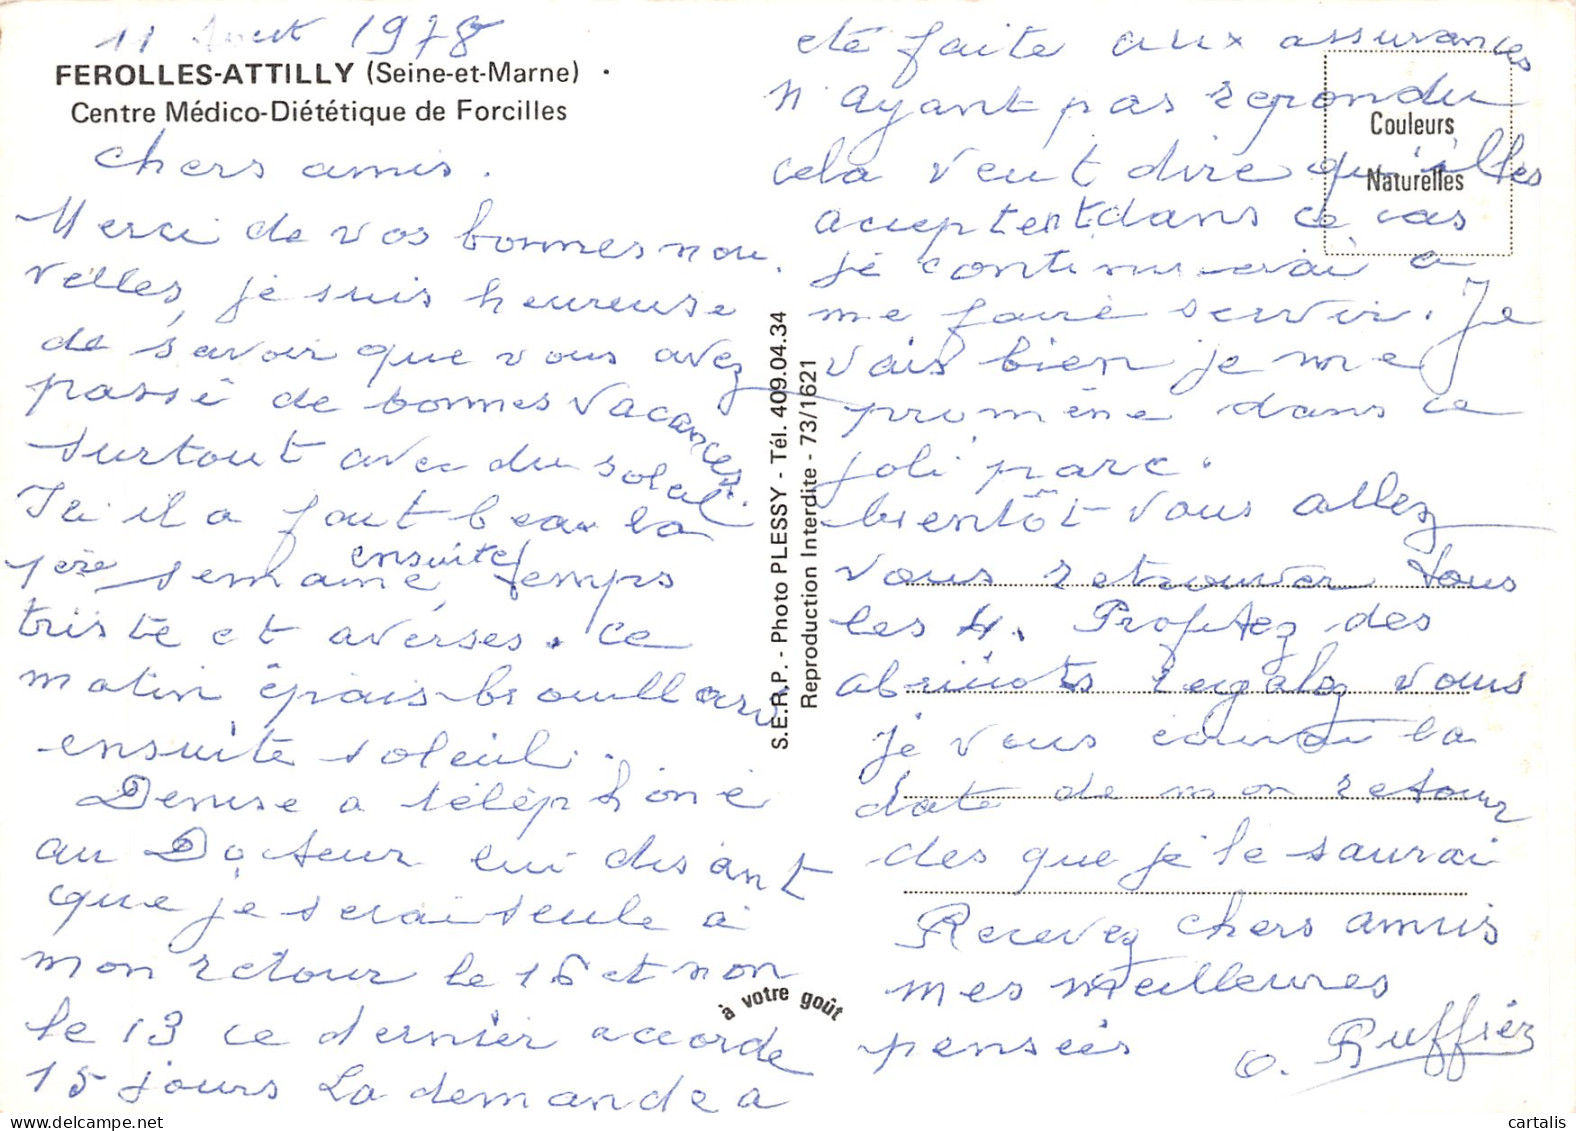 11 Aout 1978
FEROLLES-ATTILLY (Seine-et-Marne)
Centre Médico-Diététique de Forcilles
chers amis.
Merci de vos bonnes nou.
velles, je suis heureuse
de savoir que vous avez
passé de bonnes vacances.
surtout avec du soleil
Ici il a fait beau la
1ère semaine, ensuite temps
triste et averses. ce
matin épais brouillard
ensuite soleil.
Denise a téléphoné
au Docteur lui disant
que je serai seule à
mon retour le 16 et non
le 13 ce dernier accorde
15 jours La demande a
été faite aux assurances
n'ayant pas repondu
cela veut dire qu'elles
acceptent dans ce cas
je continuerai a
me faire servir. Je
vais bien je me
promène dans ce
joli parc.
bientôt vous allez
vous retrouver tous
les 4. Profitez des
abricots regalez vous
je vous la
date de mon retour
des que je le saurai
Recevez chers amis
mes meilleures
pensées
O. Ruffiéz
Couleurs
Naturelles
S.E.R.P. - Photo PLESSY - Tél. 409.04.34
Reproduction Interdite - 73/1621
à votre goût
cartalis.com